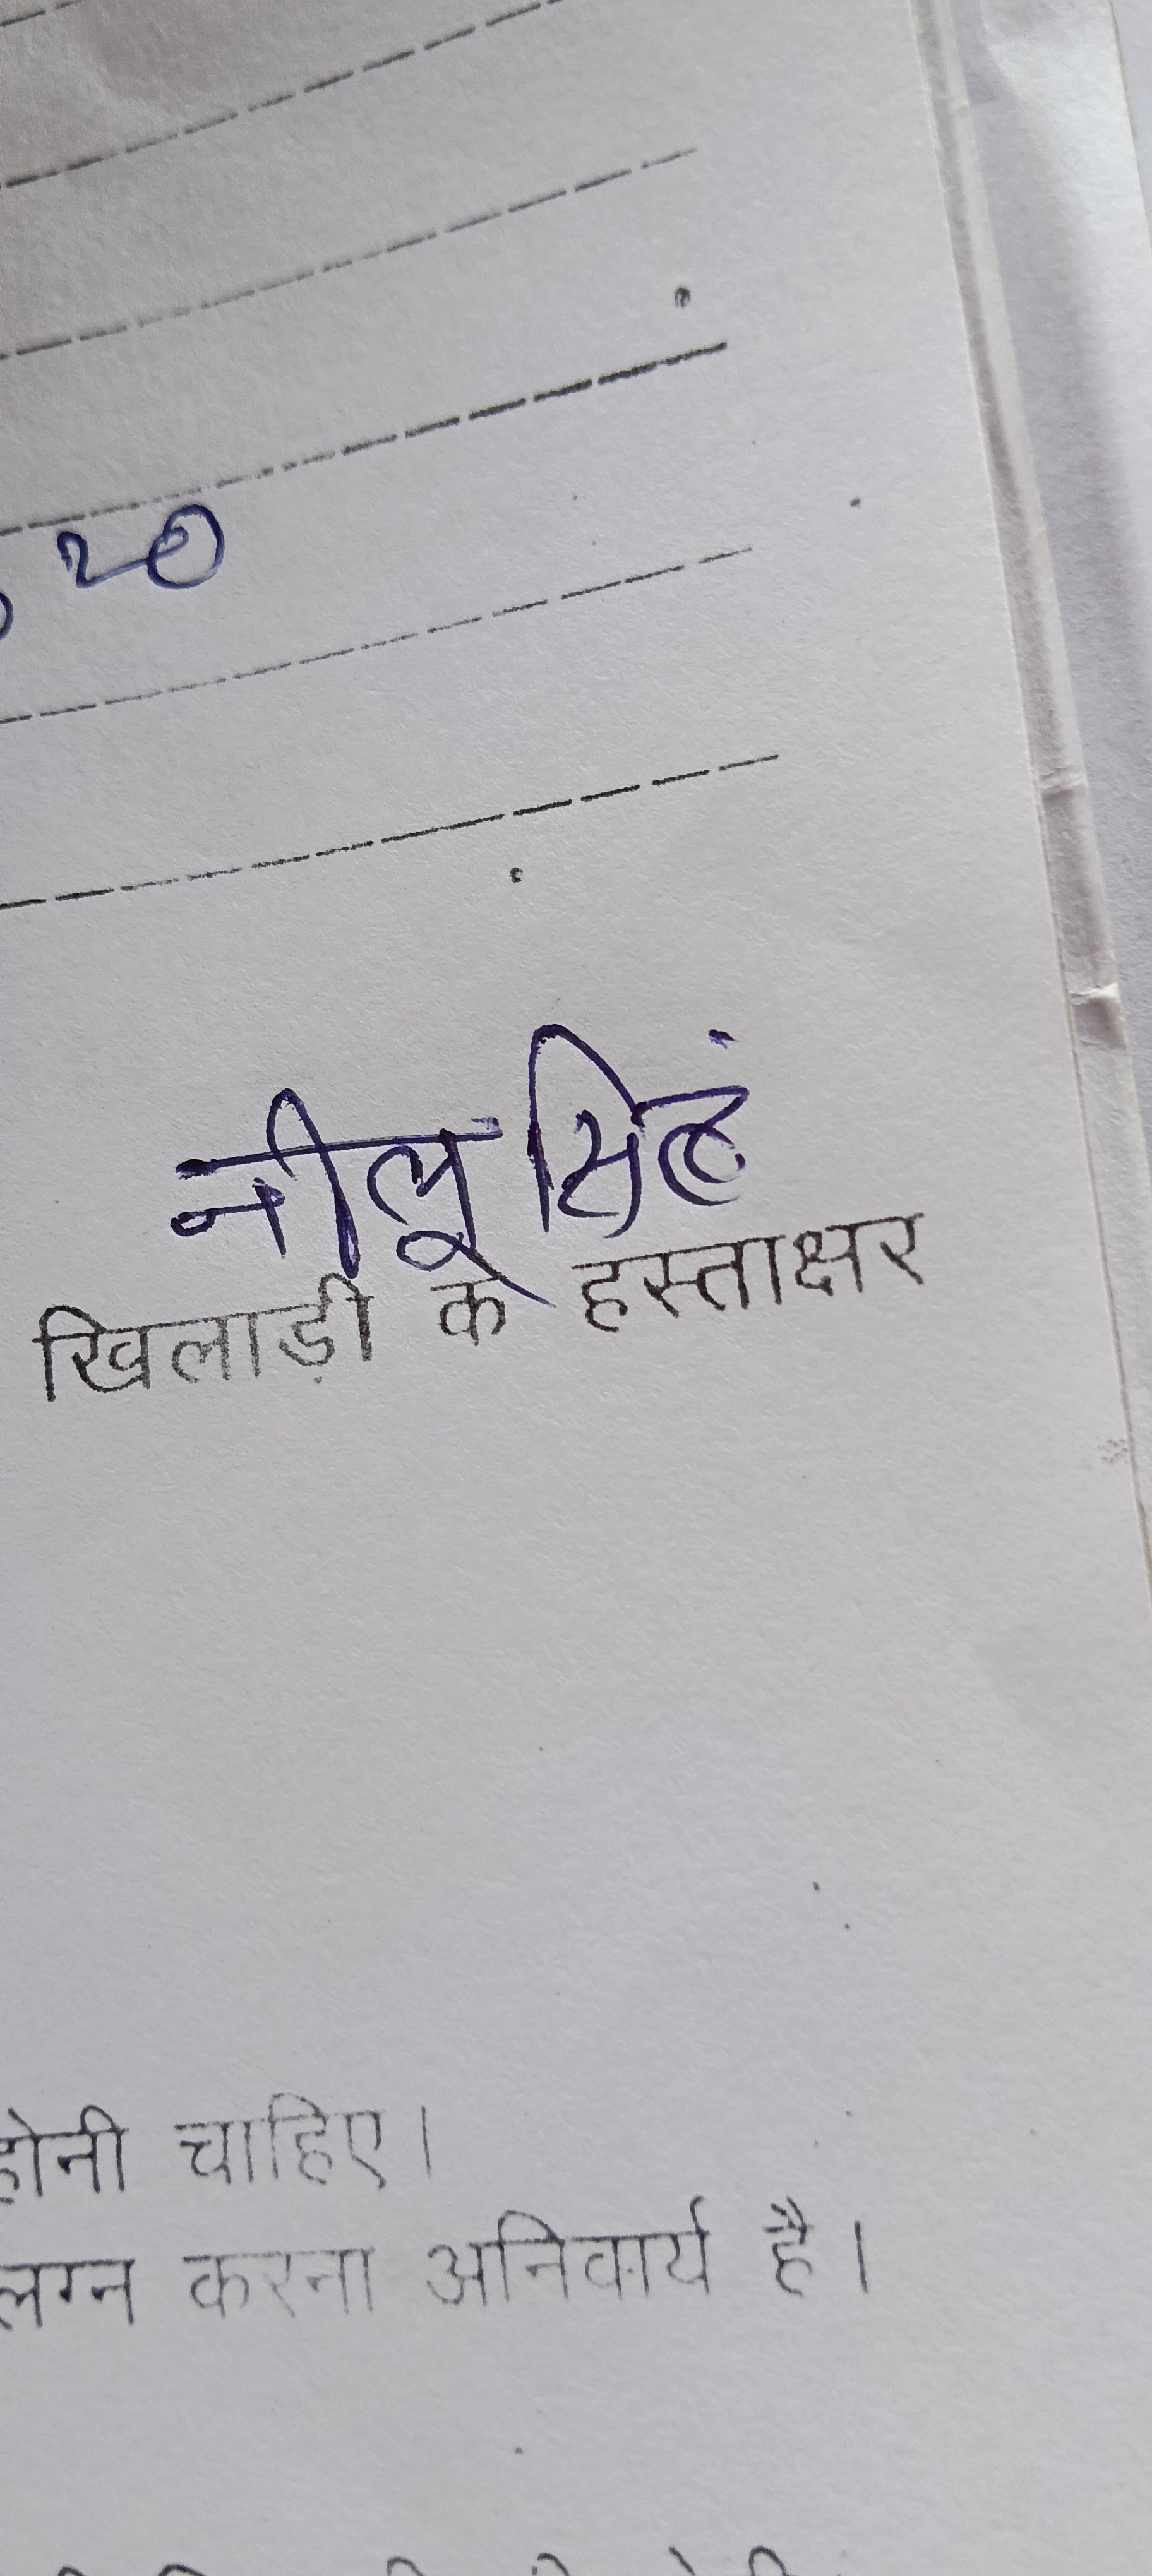 20
नीलू सिहं
खिलाड़ी के हस्ताक्षर
होनी चाहिए।
लग्न करना अनिवार्य है।